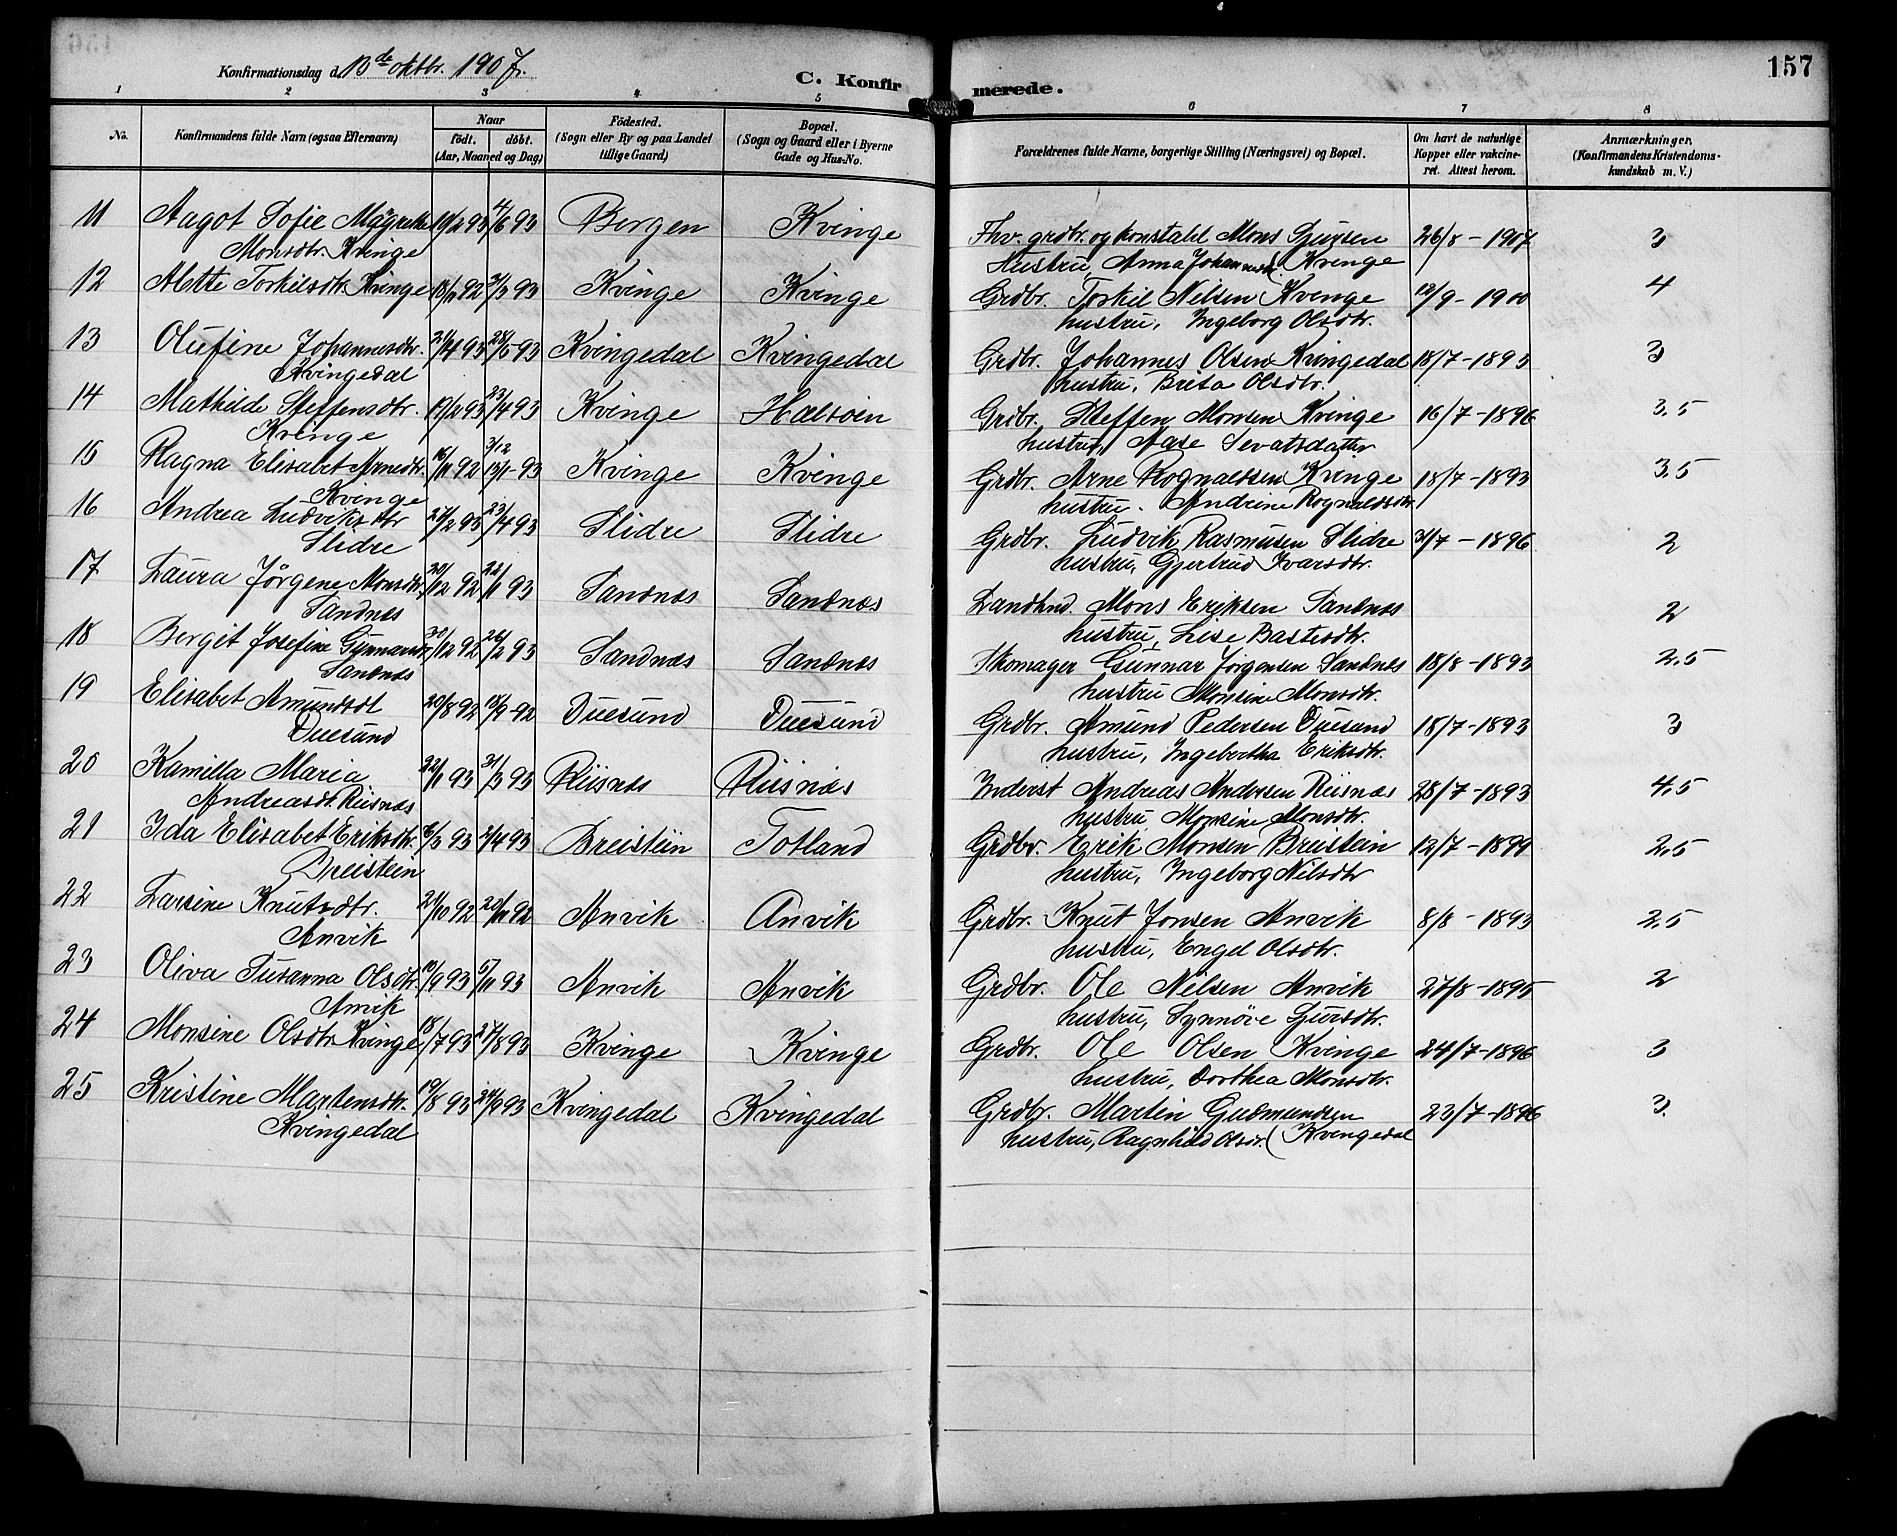 157
Konfirmationsdag d. 13de oktbr. 1907.
C. Konfirmerede.
1 2 3 4 5 6 7 8
No. Konfirmandens fulde Navn (ogsaa Efternavn) Naar födt. döbt. (Aar, Maaned og Dag) Födested. (Sogn eller By og paa Landet tillige Gaard) Bopæl. (Sogn og Gaard eller i Byerne Gade og Hus-No. Forældrenes fulde Navne, borgerlige Stilling (Næringsvei) og Bopæl. Om havt de naturlige Kopper eller vakcineret. Attest herom. Anmærkninger. (Konfirmandens Kristendomskundskab m. V.)
11 Aagot Sofie Margrethe 19/2 93 4/6 93 Bergen Kvinge Fhv. grdbr. og konstabl Mons Sjursen 26/8 - 1907 3
Monsdtr. Kvinge hustru, Anna Johannesd. Kvinge
12 Mette Torkilsdtr. Kvinge 92 93 Kvinge Kvinge Grdbr. Torkil Nelsen Kvinge 12/9 - 1900 4
hustru, Ingeborg Olsdtr.
13 Olufine Johannesdtr. 21/4 93 28/5 93 Kvingedal Kvingedal Grdbr. Johannes Olsen Kvingedal 18/7 - 1893 3
Kvingedal hustru, Brita Olsdtr.
14 Mathilde Steffensdtr. 17/2 93 23/4 93 Kvinge Halsöin Grdbr. Steffen Monsen Kvinge 16/7 - 1896 3,5
Kvinge hustru, Aase Sevatsdatter
15 Ragna Elisabet Arnedtr. 16/11 92 3/12 13/1 - 93 Kvinge Kvinge Grdbr. Arne Rognaldsen Kvinge 18/7 - 1893 3,5
Kvinge hustru. Andrine Rognaldsdtr
16 Andrea Ludviksdtr 24/2 93 23/4 93 Slidre Slidre Grdbr. Ludvik Rasmusen Slidre 31/7 - 1896 2
Slidre hustru, Gjertrud Ivarsdtr.
17 Laura Jörgene Monsdtr. 20/12 92 22/1 93 Sandnæs Sandnæs Landhnd. Mons Eriksen Sandnæs 2
Sandnæs hustru, Lise Bastesdtr.
18 Bergit Josefine Gunnarsdtr 30/12 92 26/2 93 Sandnæs Sandnæs Skomager Gunnar Jörgensen Sandnæs 18/8 - 1893 2,5
Sandnæs hustru Monsine Monsdtr.
19 Elisabet Amundsdt 20/8 92 18/9 - 92 Duesund Duesund Grdbr. Amund Pedersen Duesund 18/7 - 1893 3
Duesund hustru, Ingebortha Eriksdtr.
20 Kamilla Maria 22/1 93 31/3 93 Riisnæs Riisnæs Inderst Andreas Andersen Riisnæs 28/7 - 1893 4,5
Andreasdt. Riisnæs hustru Monsine Monsdtr.
21 Ida Elisabet Eriksdtr. 6/3 93 2/4 93 Breistein Totland Grdbr. Erik Monsen Breistein 12/7 - 1899 2,5
Breistein hustru, Ingeborg Nilsdtr
22 Larsine Knutsdtr. 21/10 92 20/11 92 Anvik Anvik Grdbr. Knut Jonsen Anvik 8/8 - 1893 2,5
Anvik hustru, Engel Olsdtr.
23 Oliva Susanna Olsdtr. 10/9 93 5/11 93 Anvik Anvik Grdbr. Ole Nilsen Anvik 27/8 - 1895 2
Anvik hustru, Synnöve Sjursdtr.
24 Monsine Olsdtr. Kvinge 18/7 93 27/8 93 Kvinge Kvinge Grdbr. Ole Olsen Kvinge 24/7 - 1896 3
hustru, Dorthea Monsdtr.
25 Kristine Martensdtr. 19/8 93 24/9 93 Kvingedal Kvingedal Grdbr. Martin Gudmundsen 23/7 - 1896 3.
Kvingedal hustru, Ragnhild Olsdr. (Kvingedal